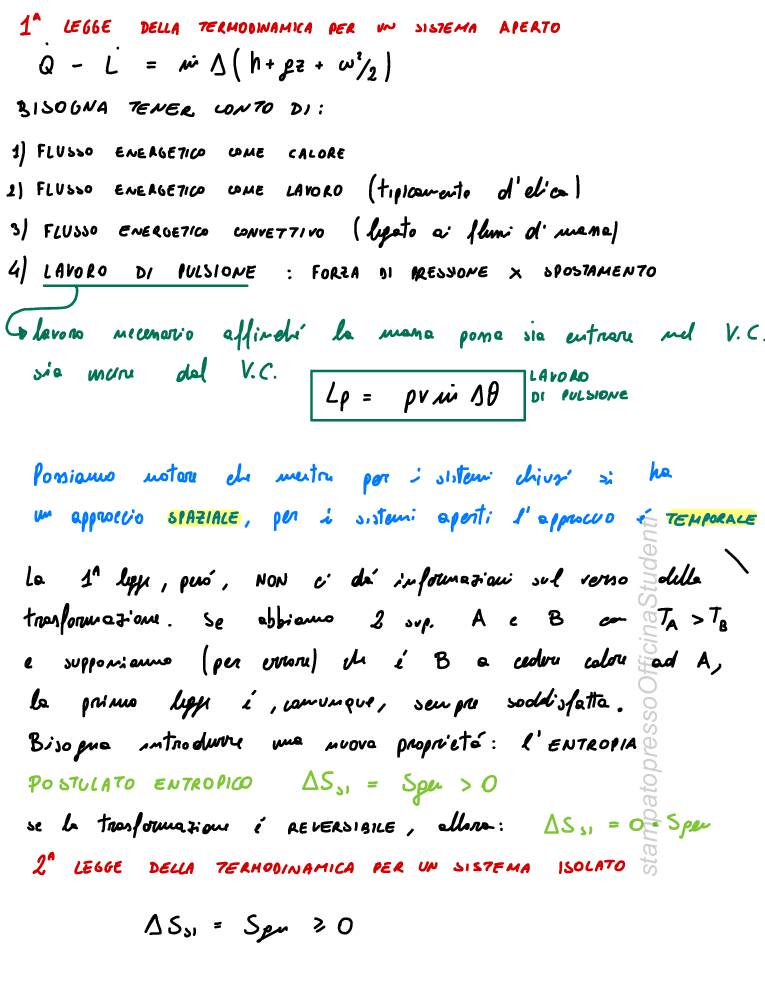 1ᴬ LEGGE DELLA TERMODINAMICA PER UN SISTEMA APERTO
Q̇ - L̇ = ṁ Δ(h + gz + w²/2)
BISOGNA TENER CONTO DI:
1) FLUSSO ENERGETICO COME CALORE
2) FLUSSO ENERGETICO COME LAVORO (tipicamente d'elica)
3) FLUSSO ENERGETICO CONVETTIVO (legato ai flussi di massa)
4) LAVORO DI PULSIONE : FORZA DI PRESSIONE x SPOSTAMENTO
lavoro necessario affinché la massa possa sia entrare nel V.C.
sia uscire dal V.C.
Lp = pv ṁ Δθ
LAVORO
DI PULSIONE
Possiamo notare che mentre per i sistemi chiusi si ha
un approccio SPAZIALE, per i sistemi aperti l'approccio é TEMPORALE
La 1ᴬ legge, peró, NON ci dá informazioni sul verso della
trasformazione. Se abbiamo 2 sup. A e B con T_A > T_B
e supponiamo (per errore) che é B a cedere calore ad A,
la prima legge é, comunque, sempre soddisfatta.
Bisogna introdurre una nuova proprietá: l'ENTROPIA
POSTULATO ENTROPICO ΔS_SI = Sgen > 0
se la trasformazione é REVERSIBILE, allora: ΔS_SI = 0 = Sgen
2ᴬ LEGGE DELLA TERMODINAMICA PER UN SISTEMA ISOLATO
ΔS_SI = Sgen ≥ 0
stampatopressoOfficinaStudenti